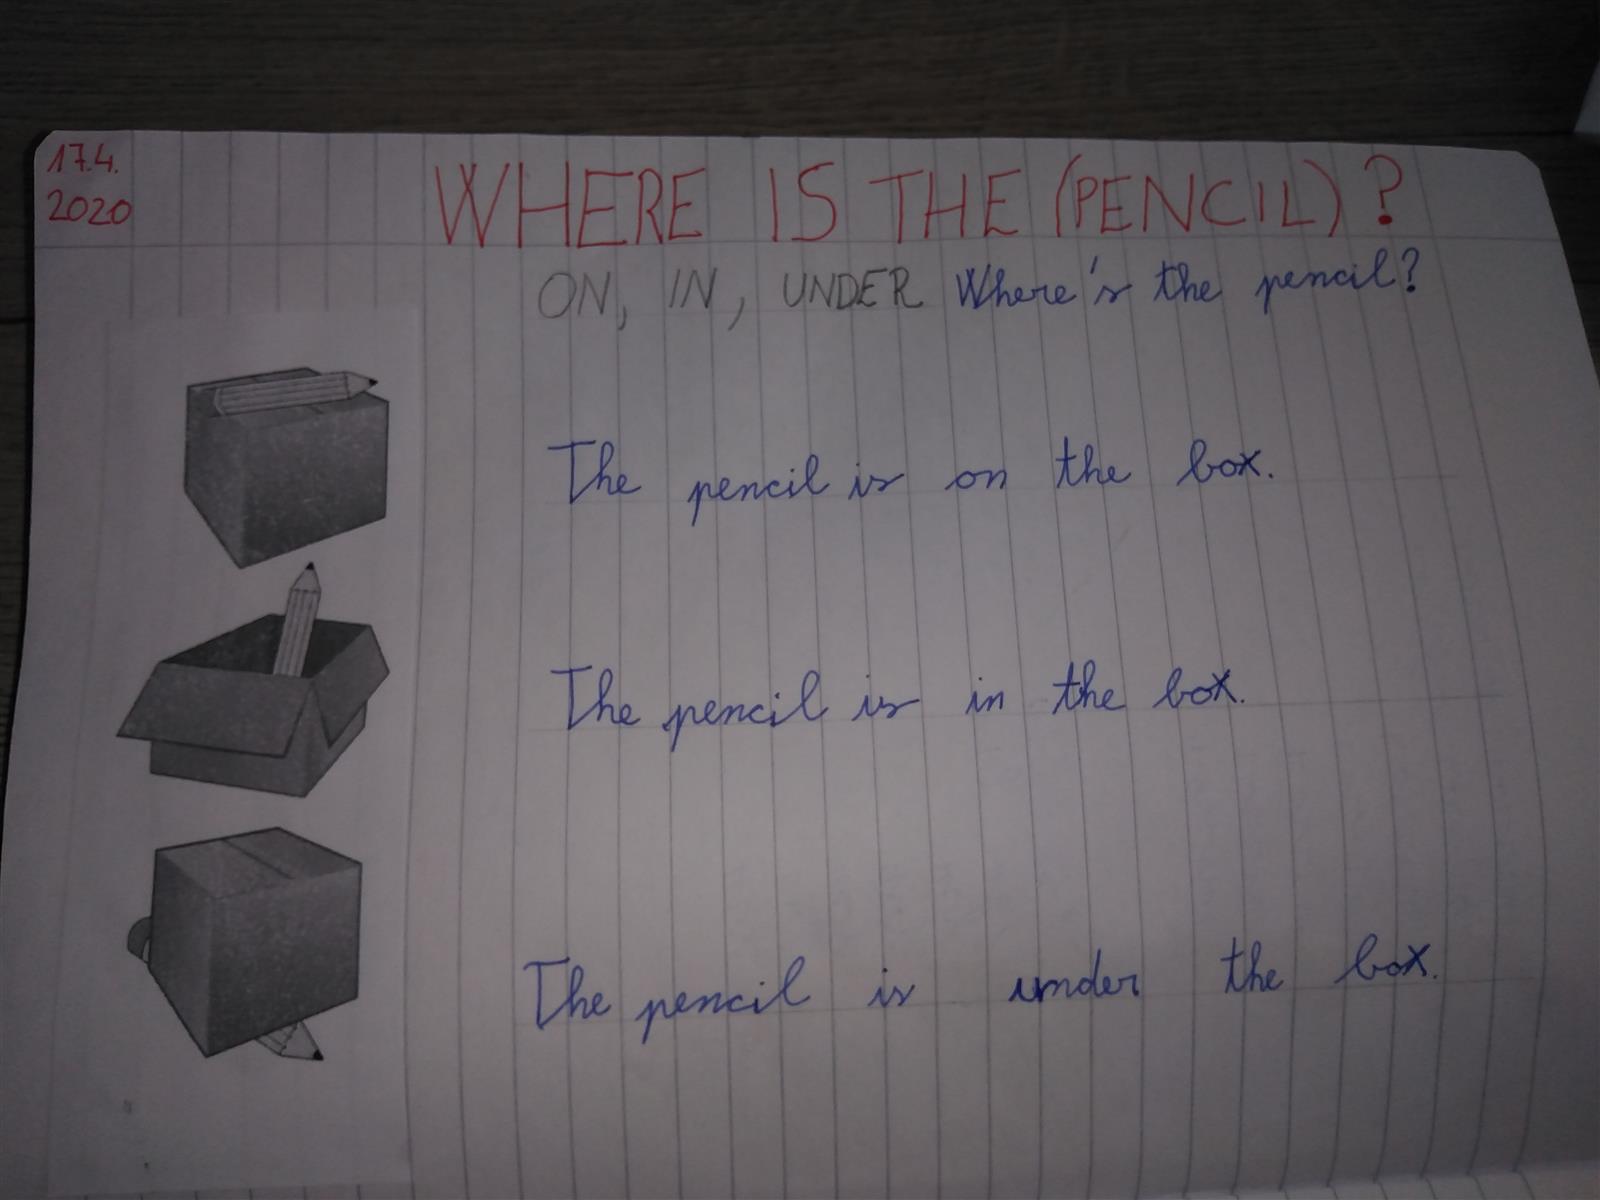 17.4.
2020
WHERE IS THE (PENCIL)?
ON, IN, UNDER Where's the pencil?
The pencil is on the box.
The pencil is in the box.
The pencil is under the box.